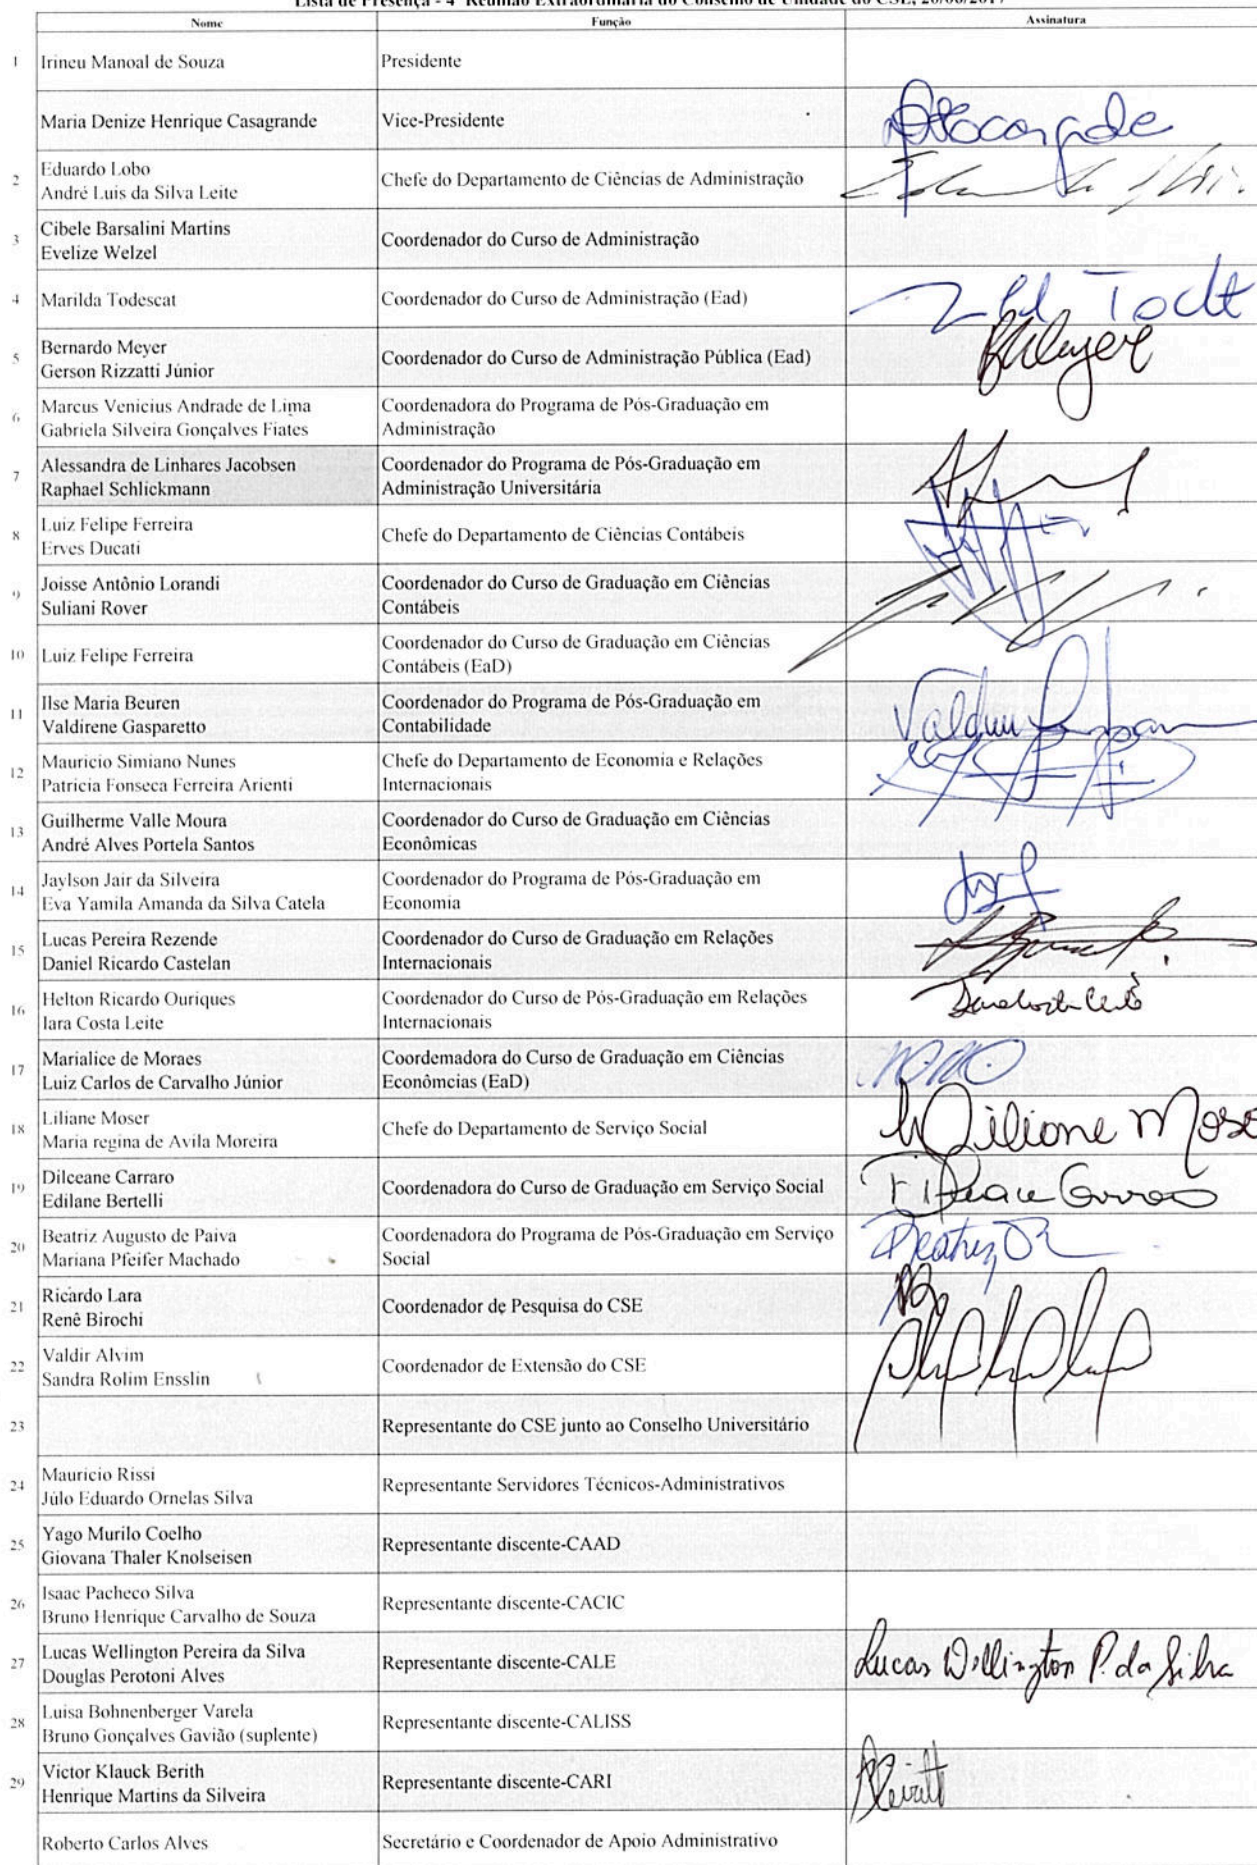 Lista de Presença - 4ª Reunião Extraordinária do Conselho de Unidade do CSE, 20/06/2017
Nome Função Assinatura
1 Irineu Manoal de Souza Presidente
Maria Denize Henrique Casagrande Vice-Presidente
2 Eduardo Lobo
André Luis da Silva Leite
Chefe do Departamento de Ciências de Administração
3 Cibele Barsalini Martins
Evelize Welzel
Coordenador do Curso de Administração
4 Marilda Todescat Coordenador do Curso de Administração (Ead)
5 Bernardo Meyer
Gerson Rizzatti Júnior
Coordenador do Curso de Administração Pública (Ead)
BMeyer
6 Marcus Venicius Andrade de Lima
Gabriela Silveira Gonçalves Fiates
Coordenadora do Programa de Pós-Graduação em
Administração
7 Alessandra de Linhares Jacobsen
Raphael Schlickmann
Coordenador do Programa de Pós-Graduação em
Administração Universitária
8 Luiz Felipe Ferreira
Erves Ducati
Chefe do Departamento de Ciências Contábeis
9 Joisse Antônio Lorandi
Suliani Rover
Coordenador do Curso de Graduação em Ciências
Contábeis
10 Luiz Felipe Ferreira
Coordenador do Curso de Graduação em Ciências
Contábeis (EaD)
11 Ilse Maria Beuren
Valdirene Gasparetto
Coordenador do Programa de Pós-Graduação em
Contabilidade
12 Mauricio Simiano Nunes
Patricia Fonseca Ferreira Arienti
Chefe do Departamento de Economia e Relações
Internacionais
13 Guilherme Valle Moura
André Alves Portela Santos
Coordenador do Curso de Graduação em Ciências
Econômicas
14 Jaylson Jair da Silveira
Eva Yamila Amanda da Silva Catela
Coordenador do Programa de Pós-Graduação em
Economia
15 Lucas Pereira Rezende
Daniel Ricardo Castelan
Coordenador do Curso de Graduação em Relações
Internacionais
16 Helton Ricardo Ouriques
Iara Costa Leite
Coordenador do Curso de Pós-Graduação em Relações
Internacionais
17 Marialice de Moraes
Luiz Carlos de Carvalho Júnior
Coordemadora do Curso de Graduação em Ciências
Econômcias (EaD)
18 Liliane Moser
Maria regina de Avila Moreira
Chefe do Departamento de Serviço Social
Liliane Mose
19 Dilceane Carraro
Edilane Bertelli
Coordenadora do Curso de Graduação em Serviço Social
20 Beatriz Augusto de Paiva
Mariana Pfeifer Machado
Coordenadora do Programa de Pós-Graduação em Serviço
Social
Beatriz
21 Ricardo Lara
Renê Birochi
Coordenador de Pesquisa do CSE
22 Valdir Alvim
Sandra Rolim Ensslin
Coordenador de Extensão do CSE
23 Representante do CSE junto ao Conselho Universitário
24 Mauricio Rissi
Júlo Eduardo Ornelas Silva
Representante Servidores Técnicos-Administrativos
25 Yago Murilo Coelho
Giovana Thaler Knolseisen
Representante discente-CAAD
26 Isaac Pacheco Silva
Bruno Henrique Carvalho de Souza
Representante discente-CACIC
27 Lucas Wellington Pereira da Silva
Douglas Perotoni Alves
Representante discente-CALE
Lucas Wellington P. da Silva
28 Luisa Bohnenberger Varela
Bruno Gonçalves Gavião (suplente)
Representante discente-CALISS
29 Victor Klauck Berith
Henrique Martins da Silveira
Representante discente-CARI
Roberto Carlos Alves Secretário e Coordenador de Apoio Administrativo